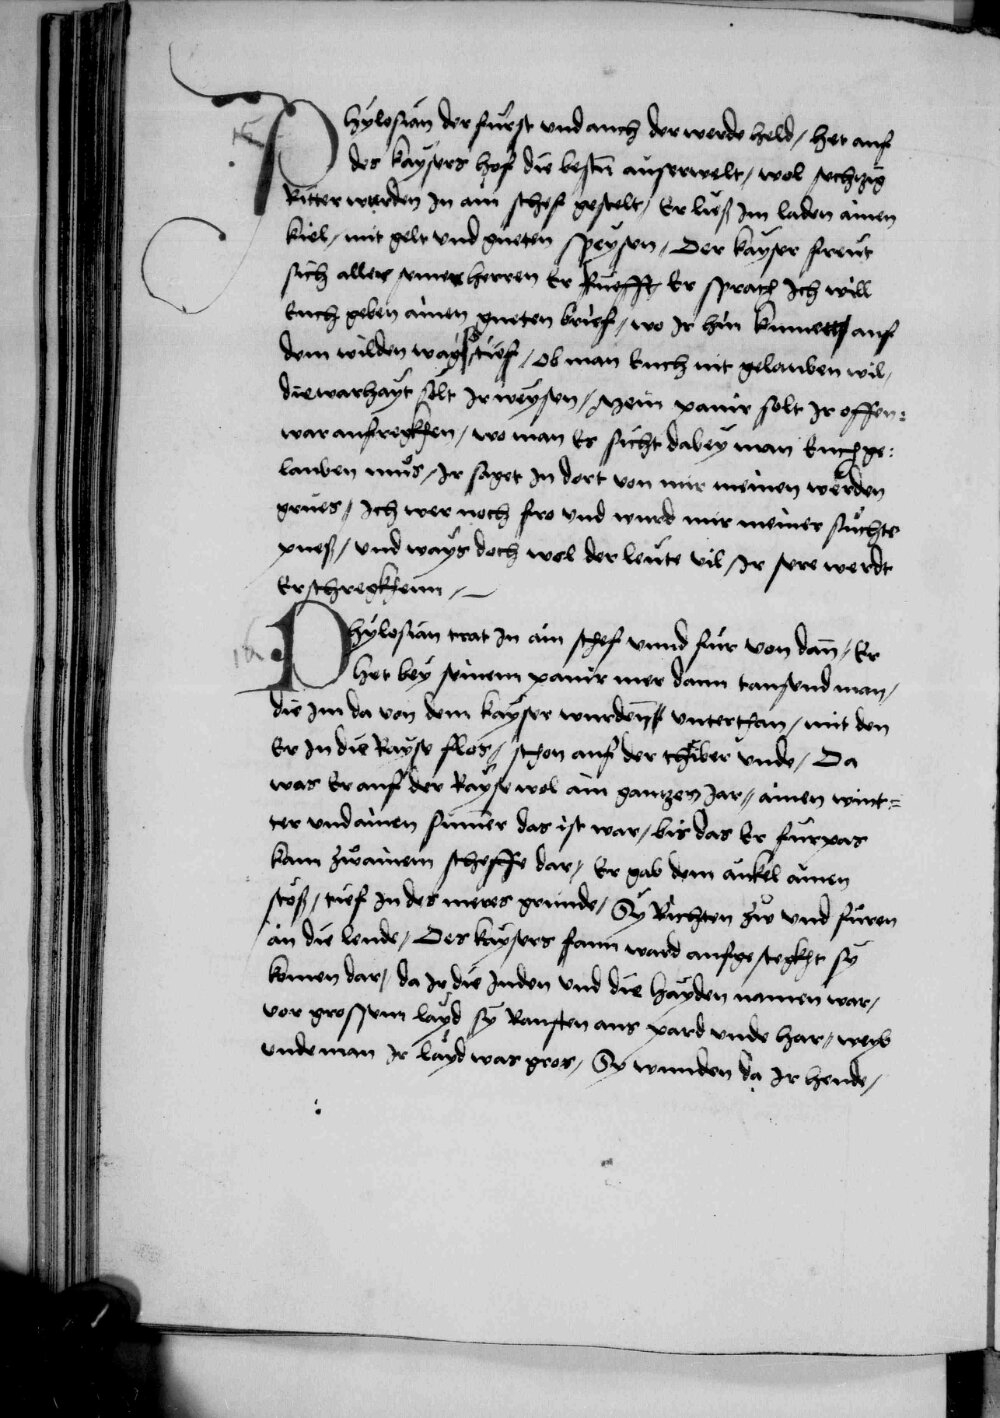 Phylosian der fürst und auch der werde held / het auf
des kaysers hof die besstn̄ auserwelt / wol sechtzig
Ritter wurden In ain schef gestelt / Er ließ Im laden ainen
kiel / mit gelt und gueten speysen / Der kayser freut
sich aller seiner herren Er Rueffte Er sprach Ich will
Euch geben ainen gueten brief / wo Ir hin kumett auf
dem wilden wag so tief / Ob man Euch nit gelauben wil /
die warhayt sölt Ir weysen / Mein panir solt Ir offen=
war aufregkhen / wo man Es sicht dabey man Euch ge=
lauben mus / Ir saget In dort von mir meinen werden
grues / Ich wer noch fro und wurd mir meiner süchte
pueß / und ways doch wol der leute vil / Ir sere werdt
Erschregkhenn /
15
Phylosian trat In ain schef unnd fur von dan̄ / Er
16
het bey seinem panir mer dann tausend man /
die Im da von dem kayser wurden̄ unterthan / mit den
Er In die Rayse flos / schon auf der thiber unde / Da
was Er auf der Rayse wol ain gantzen Jar / ainen wint=
ter und ainen sumer das ist war / bis das Er fürpas
kam zw ainem scheffe dar / Er gab dem ankel ainen
stoß / tief In des meres grunde / Sy Richten zw und furen
an die lende / Des kaysers fann ward aufgestegkht sy
komen dar / da Ir die Juden und die hayden namen war /
vor grossem layd sy Rauften aus pard unde har / weyb
unde man Ir layd was gros / Sy wunden da Ir hende /